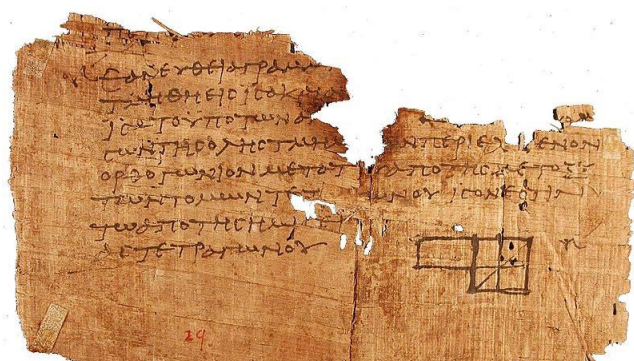 ΕΑΝ ΕΥΘΕΙΑ ΓΡΑΜΜ
ΤΜΗΘΗ ΕΙϹ ΙϹΑ ΚΑΙ Α
ΙϹΑ ΤΟ ΥΠΟ ΤΩΝ Α
ϹΩΝ ΤΗϹ ΟΛΗϹ ΤΜΗΜ ΩΝ ΠΕΡΙΕΧΟΜΕΝΟΝ
ΟΡΘΟΓΩΝΙΟΝ ΜΕΤΑ Τ Υ ΑΠΟ ΤΗϹ ΜΕΤΟΞΥ
ΤΩΝ ΤΟΜΩΝ ΤΕΤ ΩΝΟΥ ΙϹΟΝ ΕϹΤΙΝ
ΤΩ ΑΠΟ ΤΗϹ ΗΜΙ
ΤΕΤΡΑΓΩΝΟΥ
29